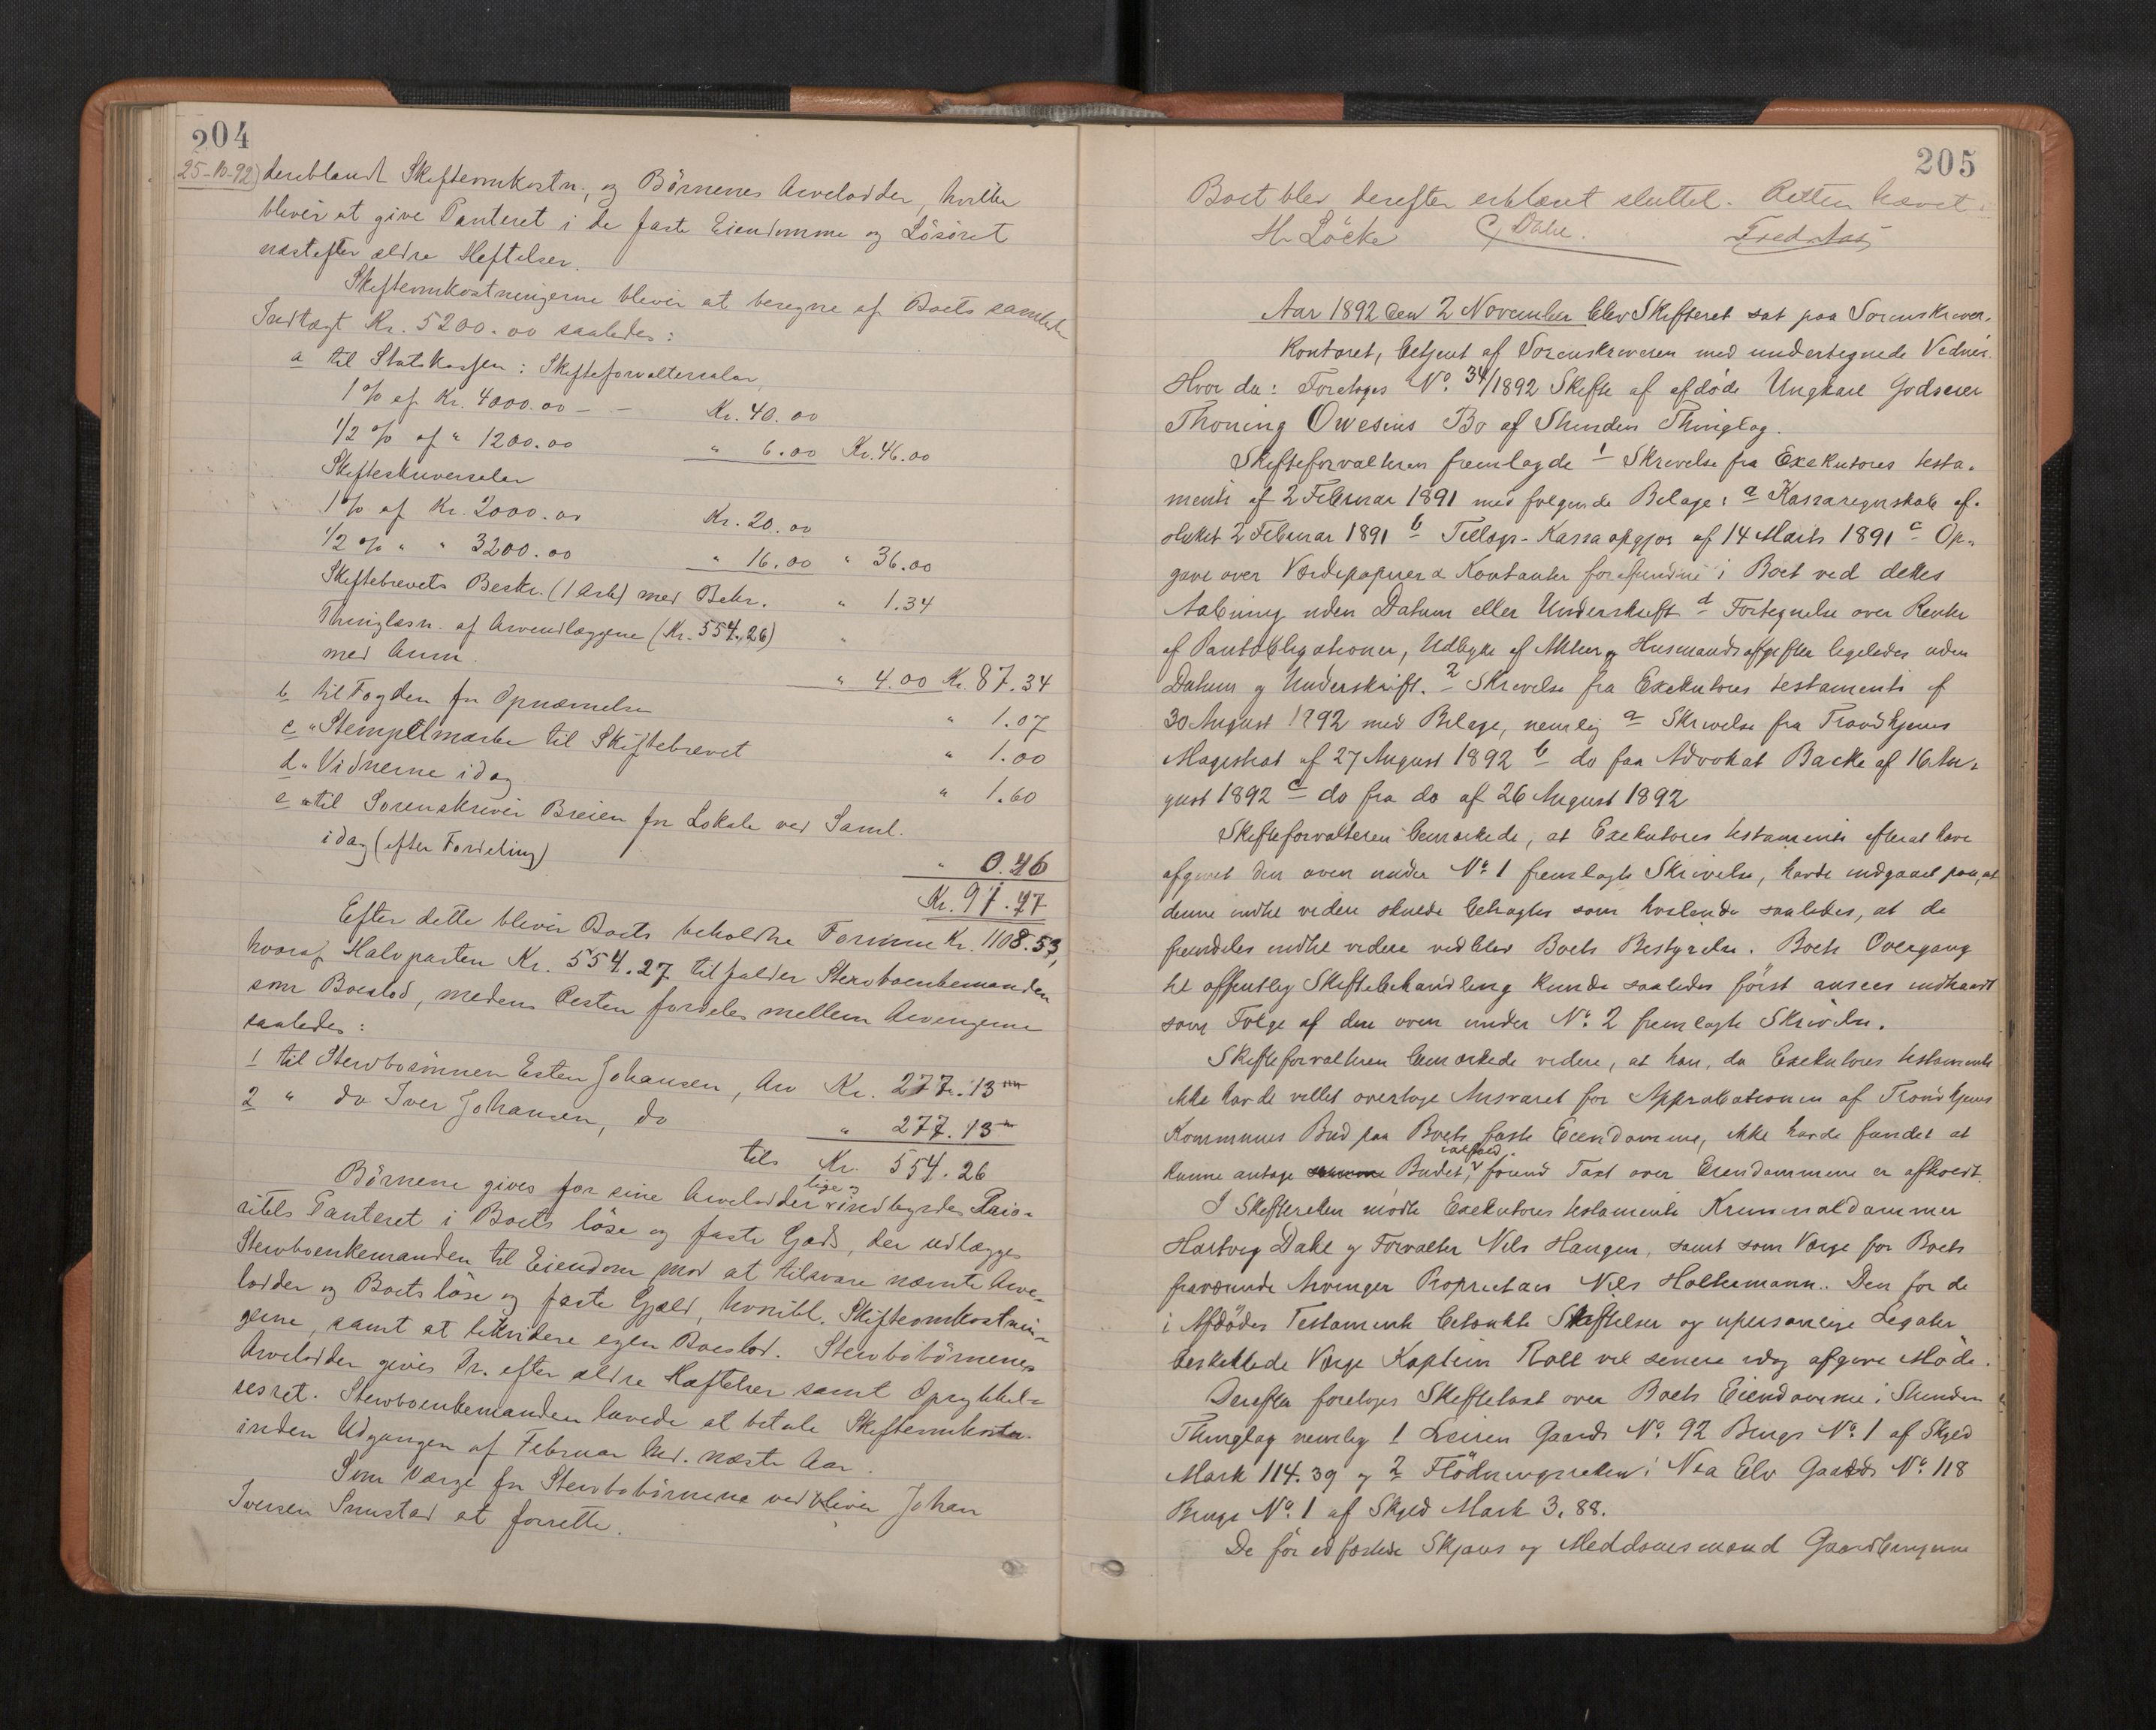 204
25-10-92) dereblandt Skifteomkostn., og Börnenes Arvelodder, hvilke
bliver at give Panteret i de faste Eiendomme og Lösöret
næstefter ældre Heftelser.
Skifteomkostningerne bliver at beregne af Boets samlede
Indtægt Kr. 5200.00 saaledes:
a til Statskassen: Skifteforvaltersalær
1% af Kr. 4000.00 - - Kr. 40.00
1/2 % af " 1200.00 " 6.00 Kr. 46.00
Skifteskriversalær
1% af Kr. 2000.00 Kr. 20.00
1/2 % " " 3200.00 " 16.00 " 36.00
Skiftebrevets Beskr. (1 Ark) med Bekr. " 1.34
Thinglæsn. af Arveudlæggene (Kr. 554.26) "
med Anm. " 4.00 Kr. 87.34
b til Fogden for Opnævnelse " 1.07
c " Stempelmærke til Skiftebrevet " 1.00
d " Vidnerne idag " 1.60
e " til Sorenskriver Breien for Lokale ved Saml.
idag (efter Fordeling) " 0.46
Kr. 91.47
Efter dette bliver Boets beholdne Formue Kr. 1108.53,
hvoraf Halvparten Kr. 554.27 tilfalder Stervboenkemanden
som Boeslod, medens Resten fordeles mellem Arvingerne
saaledes:
1 til Stervbosönnen Esten Johansen, Arv Kr. 277.13
2 " do Iver Johansen, do " 277.13
tils Kr. 554.26
Börnene gives for sine Arvelodder lige og indbyrdes Prio-
ritets Panteret i Boets löse og faste Gods, der udlægges
Stervboenkemanden til Eiendom mod at tilsvare nævnte Arve-
lodder og Boets löse og faste Gjæld, hvoribl. Skifteomkostnin-
gerne, samt at likvidere egen Boeslod. Stervbobörnenes
Arvelodder gives Pr. efter ældre Hæftelser samt Oprykkel-
sesret. Stervboenkemanden lovede at betale Skifteomkostn.
inden Udgangen af Februar Md. næste Aar.
Som Værge for Stervbobörnene vedbliver Johan
Iversen Snustad at forrette.
205
Boet blev derefter erklæret sluttet. Retten hævet.
H. Löcke C. Dahl. Fredr.
Aar 1892 den 2 November blev Skifteret sat paa Sorenskriver-
kontoret, betjent af Sorenskriveren med undertegnede Vidner.
Hvor da: Foretoges No. 34/1892 Skifte af afdöde Ungkarl Godseier
Thoning Owesens Bo af Strinden Thinglag.
Skifteforvalteren fremlagde 1 Skrivelse fra Exekutores testa-
menti af 2 Februar 1891 med følgende Bilage: a Kassaregnskab af-
sluttet 2 Februar 1891 b Tillægs-Kassaopgjør af 14 Marts 1891 c Op-
gave over Værdipapirer & Kontanter forefundne i Boet ved dettes
Aabning uden Datum eller Underskrift d Fortegnelse over Renter
af Pantobligationer, Udbytte af Aktier og Husmandsafgifter ligeledes uden
Datum og Underskrift. 2 Skrivelse fra Exekutores testamenti af
30 August 1892 med Bilage, nemlig a Skrivelse fra Trondhjems
Magistrat af 27 August 1892 b do fra Advokat Backe af 16 Au-
gust 1892 c do fra do af 26 August 1892
Skifteforvalteren bemærkede, at Exekutores testamenti efterat have
afgivet den oven under No. 1 fremlagte Skrivelse, havde indgaaet paa, at
denne indtil videre skulde betragtes som hvilende saaledes, at de
fremdeles indtil videre vedblev Boets Bestyrelse. Boets Overgang
til offentlig Skiftebehandling kunde saaledes först ansees indtraadt
som Følge af den oven under No. 2 fremlagte Skrivelse.
Skifteforvalteren bemærkede videre, at han, da Exekutores testamenti
ikke havde villet overtage Ansvaret for Approbationen af Trondhjems
Kommunes Bud paa Boets faste Eiendomme, ikke havde fundet at
kunne antage Budet, ialfald førend Taxt over Eiendommene er afholdt.
I Skifteretten mødte Exekutores testamenti Kriminaldommer
Hartvig Dahl og Forvalter Nils Haugen, samt som Værge for Boets
fraværende Arvinger Proprietær Nils Holtermann. Den for de
i Afdödes Testament betænkte Stiftelser og upersonlige Legater
beskikkede Værge Kaptein Roll vil senere idag afgive Møde.
Derefter foretoges Skiftetaxt over Boets Eiendomme i Strinden
Thinglag nemlig 1 Leiren Gaards No. 92 Brugs No. 1 af Skyld
Mark 114.39 og 2 Flödningsretten i Nea Elv Gaards No. 118
Brugs No. 1 af Skyld Mark 3.88.
De før edfæstede Skjøns og Meddomsmænd Gaardbrugerne